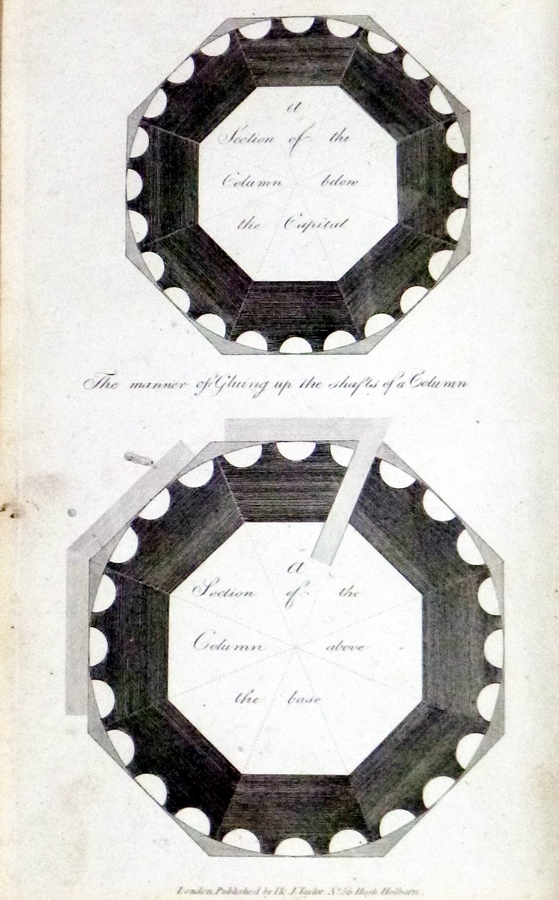 a
Section of the
Column below
the Capital
The manner of Gluing up the shafts of a Column
a
Section of the
Column above
the base
London, Published by I & J. Taylor, No. 56 High Holborn.